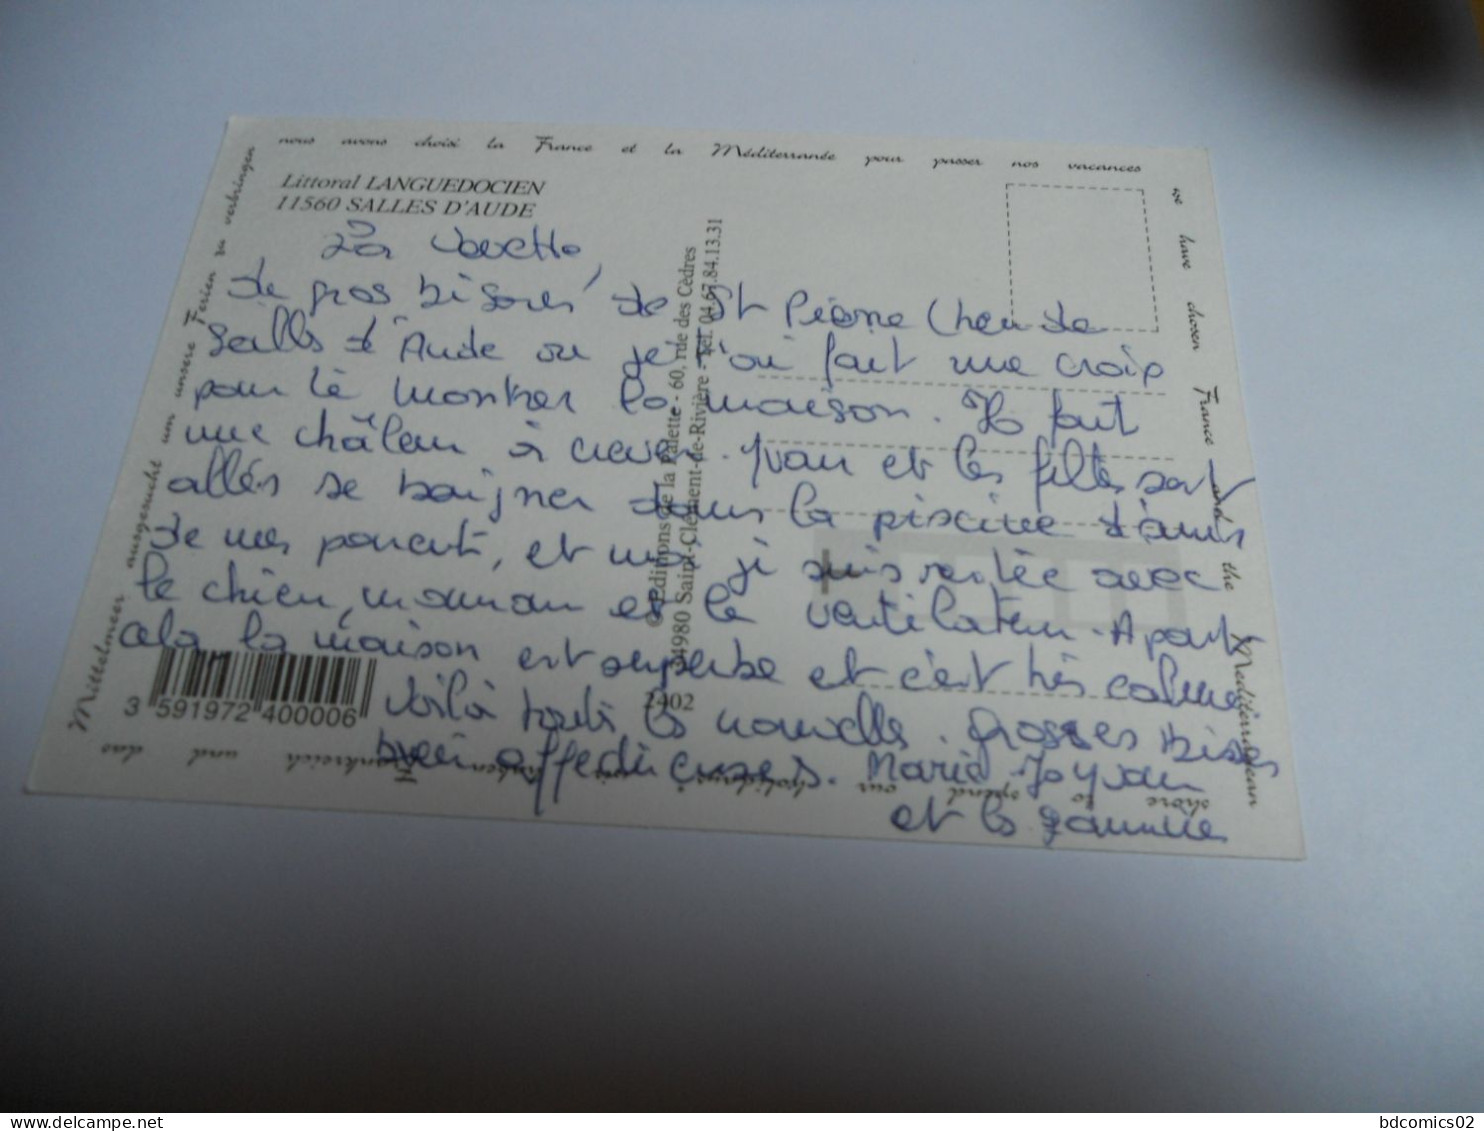 nous avons choisi la France et la Méditerranée pour passer nos vacances
we have chosen France and the Mediterranean
shore to spend our holidays
Mittelmeer ausgesucht um unsere Ferien zu verbringen
Littoral LANGUEDOCIEN
11560 SALLES D'AUDE
de gros bisous de St Pierre
Salles d'Aude ou je t'ai fait une croix
pour te montrer la maison. Il fait
une châleur à crever. Yvan et les filles sont
allés se baigner dans la piscine d'amis
de mes parents, et moi je suis restée avec
le chien, maman et le ventilateur. A part
cela la maison est superbe et c'est très calme.
Voilà toute les nouvelles. Grosses bises
bien affectueuses. Marie-Jo Yvan
et les gamines
© Editions de la Palette - 60, rue des Cèdres
34980 Saint-Clément-de-Rivière - Tél. 04.67.84.13.31
2402
3 591972 400006
delcampe.net
bdcomics02